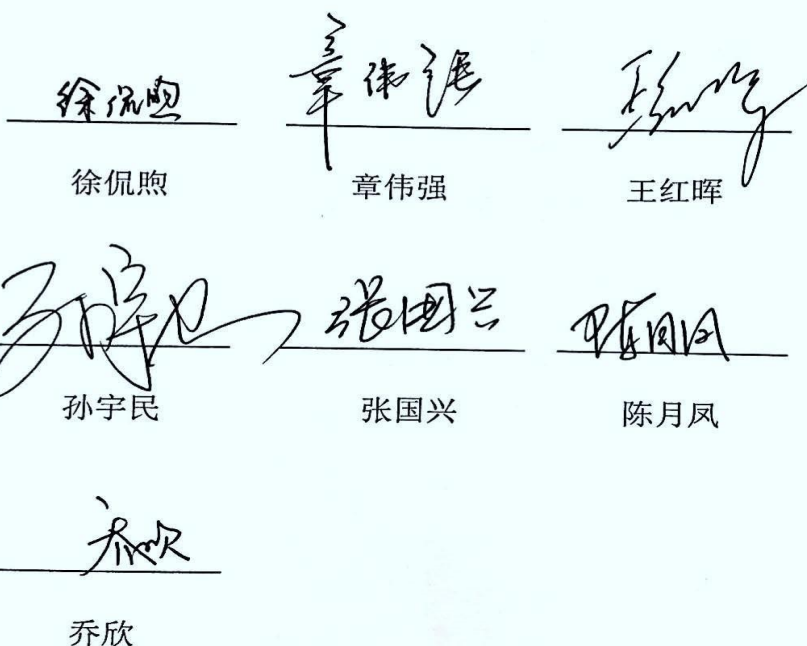 徐侃煦 章伟强 王红晖
徐侃煦 章伟强 王红晖
孙宇民 张国兴 陈月凤
孙宇民 张国兴 陈月凤
乔欣
乔欣